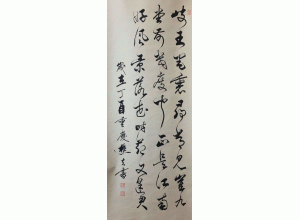 岐王宅裏尋常見崔九
堂前幾度聞正是江南
好風景落花時節又逢君
歲在丁酉重慶